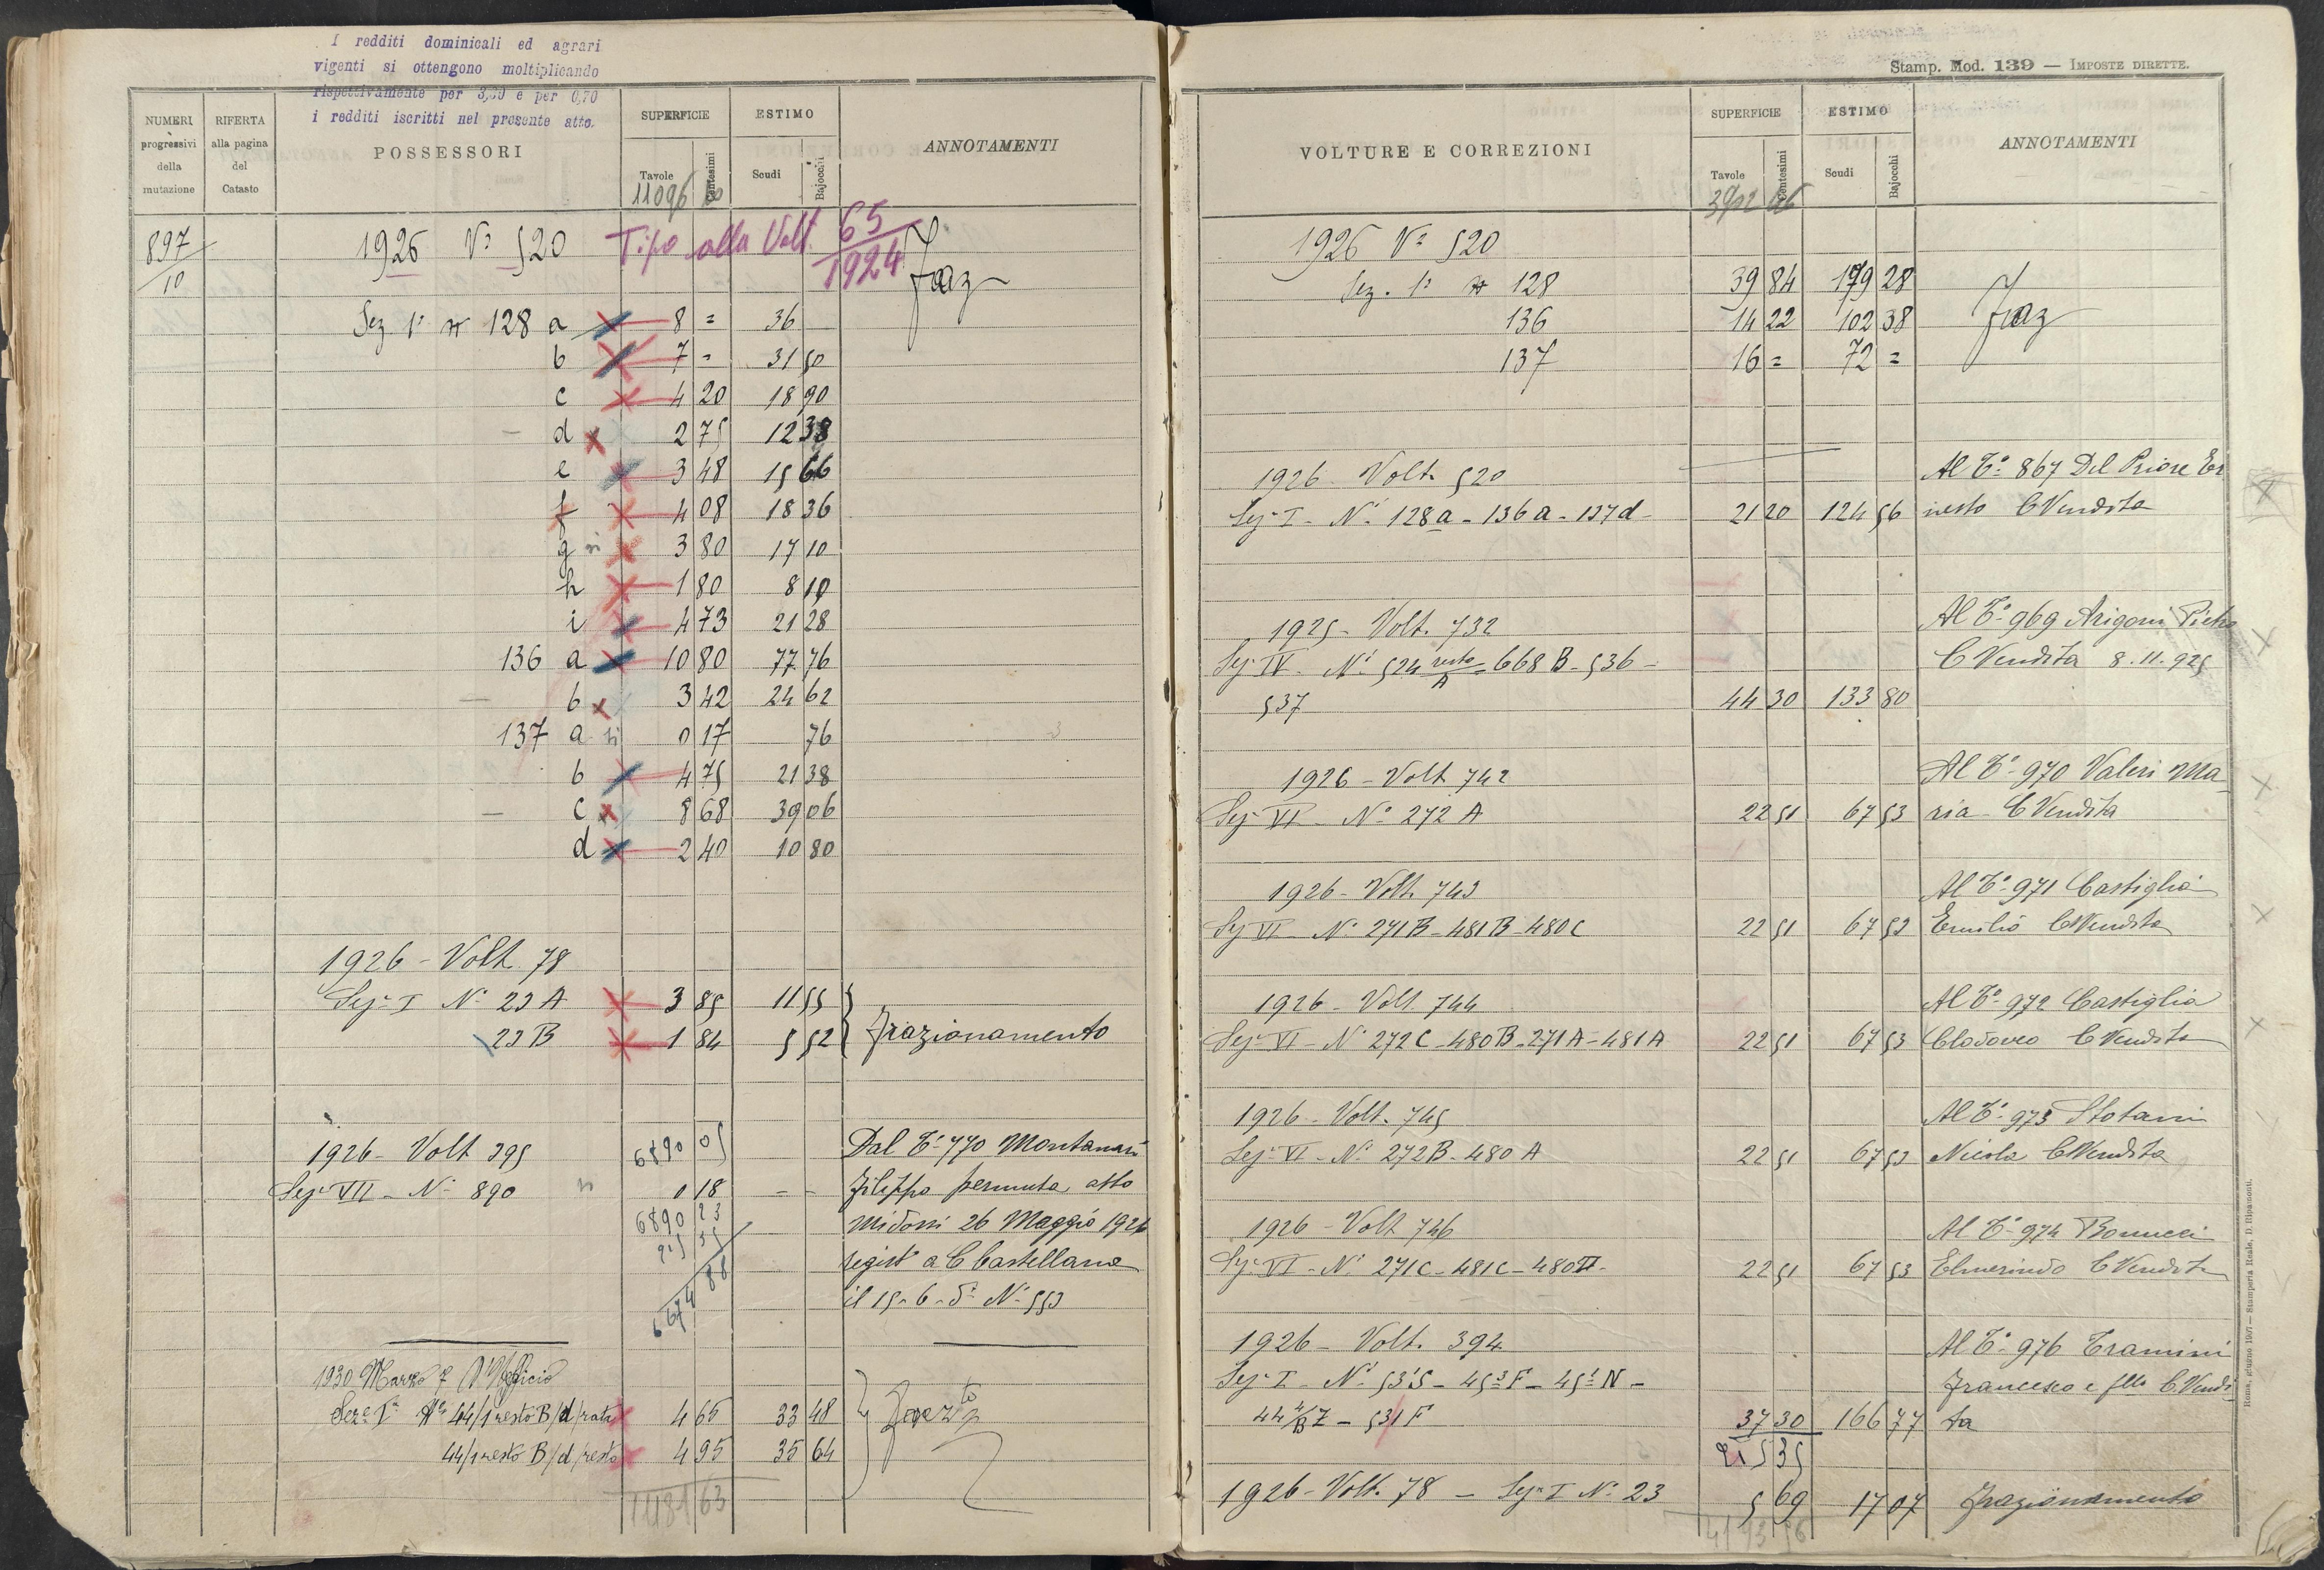 I redditi dominicali ed agrari
vigenti si ottengono moltiplicando
rispettivamente per 3,50 e per 0,70
i redditi iscritti nel presente atto.
NUMERI progressivi della mutazione
RIFERTA alla pagina del Catasto
POSSESSORI
SUPERFICIE
Tavole
Centesimi
ESTIMO
Scudi
Bajocchi
ANNOTAMENTI
11096
897/10
1926 Nº 520 Tipo alla Volt. 65/1924 Fraz
Sez 1ª Nº 128 a 8 = 36
b 7 = 31 50
c 4 20 18 90
d 2 75 12 38
e 3 48 15 66
f 4 08 18 36
g si 3 80 17 10
h 1 80 8 10
i 4 73 21 28
136 a 10 80 77 76
b 3 42 24 62
137 a si 0 17 76
b 4 75 21 38
c 8 68 39 06
d 2 40 10 80
1926 - Volt. 78
Sez. I Nº 23 A 3 85 11 55
23 B 1 84 5 52 frazionamento
1926 - Volt 395 6890 05 Dal Tº 770 Montanari
Sez. VII - Nº 890 si 0 18 - - Filippo permuta atto
6890 23 Midossi 26 Maggio 1926
215 35 regist a C Castellana
6674 88 il 15-6-dº Nº 553
1930 Marzo 7 D'Ufficio
Seze Iª Nº 44/1 resto B/d/rata 4 65 33 48 Frazto
44/1 resto B/d/resto 4 95 35 64
11181 63
Stamp. Mod. 139 — IMPOSTE DIRETTE.
VOLTURE E CORREZIONI
SUPERFICIE
Tavole
Centesimi
ESTIMO
Scudi
Bajocchi
ANNOTAMENTI
1926 Nº 520
Sez. 1ª Nº 128 39 84 179 28 Fraz
136 14 22 102 38
137 16 = 72 =
1926 Volt. 520 Al Tº 867 Del Priore Er
Sez. I - Nº 128a - 136a - 137d - 21 20 124 56 nesto C Vendita
1925 - Volt. 732 Al Tº 969 Arigoni Pietro
Sez. IV - Nº 524 resto/A - 668 B - 536 - C Vendita 8.11.925
537 44 30 133 80
1926 - Volt 742 Al Tº 970 Valeri Ma
Sez. VI - Nº 272 A 22 51 67 53 ria C Vendita
1926 - Volt. 743 Al Tº 971 Castiglia
Sez. VI Nº 271 B - 481 B - 480 C 22 51 67 53 Emilio C Vendita
1926 - Volt 744 Al Tº 972 Castiglia
Sez. VI - Nº 272 C - 480 B - 271 A - 481 A 22 51 67 53 Clodoveo C Vendita
1926 - Volt. 745 Al Tº 973 Stotani
Sez. VI - Nº 272 B - 480 A 22 51 67 53 Nicola C Vendita
1926 - Volt 746 Al Tº 974 Bonucci
Sez. VI - Nº 271 C - 481 C - 480 22 51 67 53 Elmerindo C Vendita
1926 - Volt. 394 Al Tº 976 Tramini
Sez. I - Nº 53 S - 45 F - 45 N - Francesco e flli C Vendi
44 4/B Z - 531 F 37 30 166 77 ta
215 35
1926 - Volt. 78 - Sez. I Nº 23 5 69 17 07 Frazionamento
Roma, giugno 1907 — Stamperia Reale, D. Ripamonti.